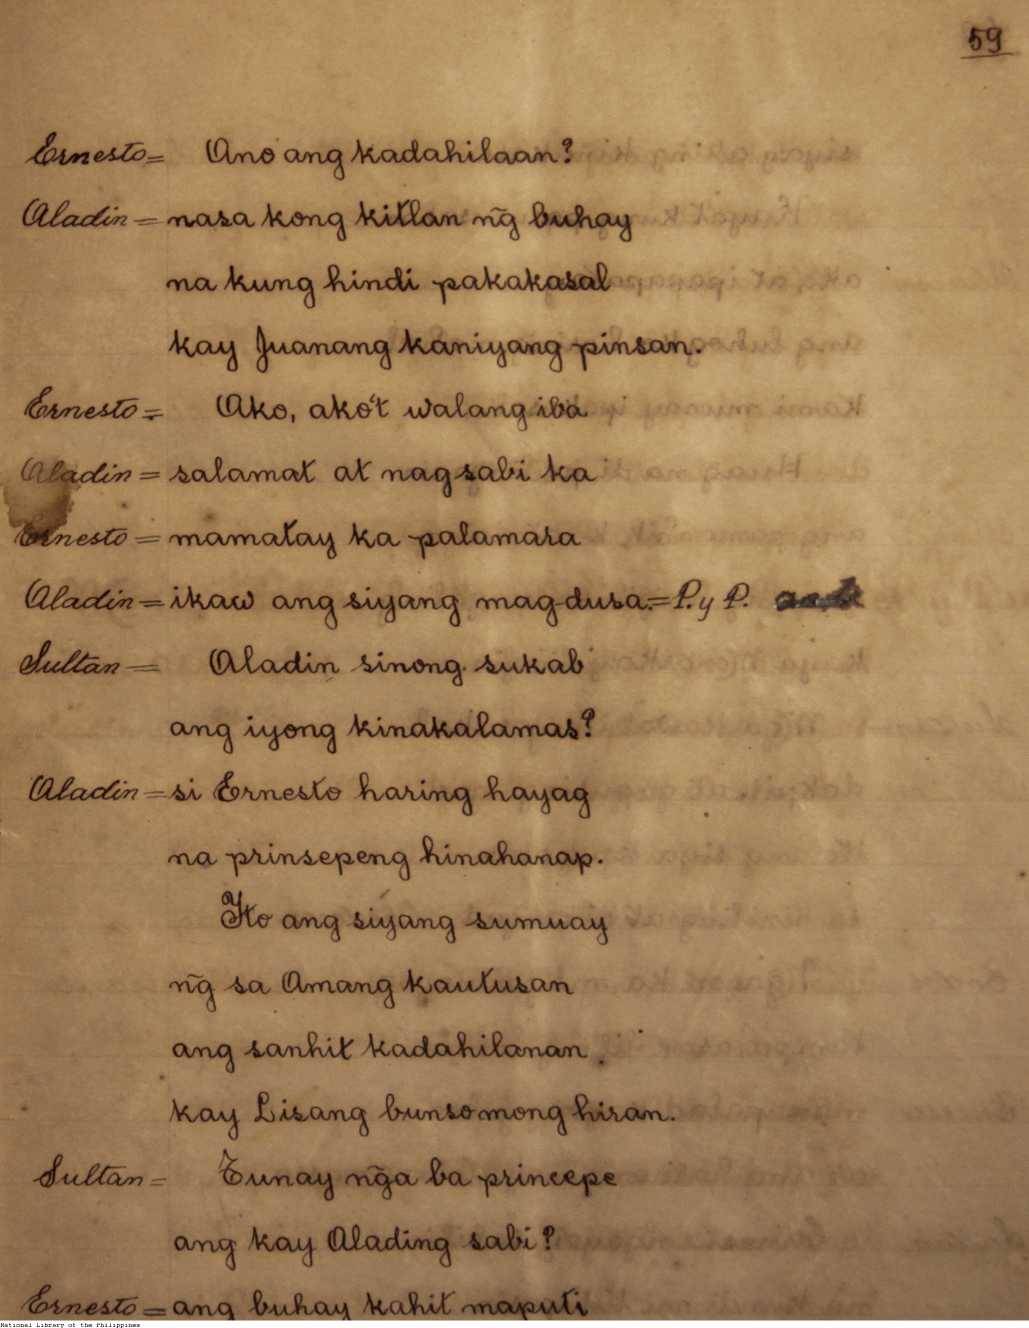 59
Ernesto= Ano ang kadahilaan?
Aladin= nasa kong kitlan ñg buhay
na kung hindi pakakasal
kay Juanang kaniyang pinsan.
Ernesto= Ako, ako't walang iba
Aladin= salamat at nagsabi ka
Ernesto= mamatay ka palamara
Aladin= ikaw ang siyang mag-dusa.=P. y P.
Sultan= Aladin sinong sukab
ang iyong kinakalamas?
Aladin= si Ernesto haring hayag
na prinsepeng hinahanap.
Ito ang siyang sumuay
ñg sa Amang kautusan
ang sanhit kadahilanan
kay Lisang bunso mong hiran.
Sultan= Tunay ñga ba princepe
ang kay Alading sabi?
Ernesto= ang buhay kahit maputi
National Library of the Philippines